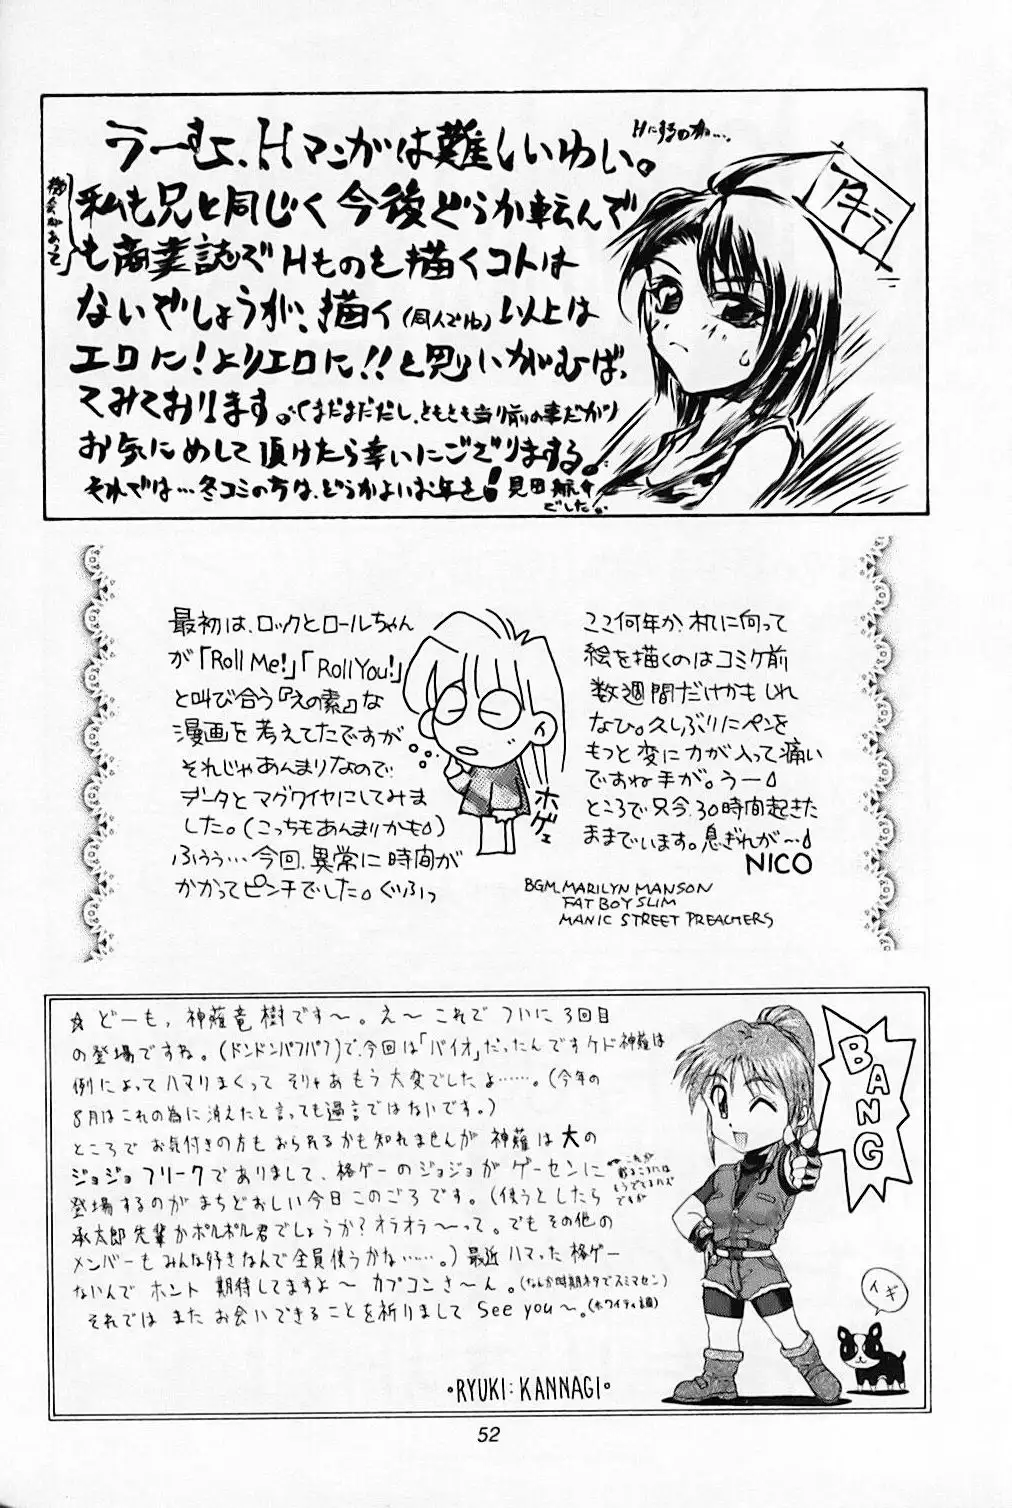 うーむ、Hマンガは難しいわい。
Hにするのが…。
私も兄と同じく今後どうか転んで
も商業誌でHものを描くコトは
機会があって
ないでしょうが、描く(同人でね)以上は
エロに!よりエロに!!と思いがむば、
てみております。(まだまだだし、ともとも当り前の事だがり)
お気にめして頂けたら幸いにござりまする。
それでは…冬コミの方は、どうかよいお年を!
でした。
アキラ
最初は、ロックとロールちゃん
が「Roll Me!」「Roll You!」
と叫び合う『えの素』な
漫画を考えてたですが
それじゃあんまりなので
データとマグワイヤにしてみま
した。(こっちもあんまりかも)
ふぅぅ…今回、異常に時間が
かかってピンチでした。ぐふっ
ホゲェ
ここ何年か、机に向って
絵を描くのはコミケ前
数週間だけかもしれ
なひ。久しぶりにペンを
もっと変に力が入って痛い
ですね手が。うー
ところで只今、30時間起きた
ままでいます。息ぎれが〜
NICO
BGM. MARILYN MANSON
FAT BOY SLIM
MANIC STREET PREACHERS
☆ どーも、神薙竜樹です〜。え〜これでついに3回目
の登場ですね。(ドンドンパフパフ)で、今回は「バイオ」だったんですケド神薙は
例によってハマりまくってそりゃあもう大変でしたよ……。(今年の
8月はこれの為に消えたと言っても過言ではないです。)
ところでお気付きの方もおられるかも知れませんが神薙は大の
ジョジョフリークでありまして、格ゲーのジョジョがゲーセンに
登場するのがまちどおしい今日このごろです。(使うとしたら
←これが
出るころには
もうでてるハズ
ですが
承太郎先輩かポルポル君でしょうか?オラオラ〜って。でもその他の
メンバーもみんな好きなんで全員使うかな……。)最近ハマった格ゲー
ないんでホント期待してますよ〜カプコンさ〜ん。(なんか時期ネタでスミマセン)
それではまたお会いできることを祈りまして See you〜。(ホワイティ調)
°RYUKI:KANNAGI°
BANG
イギ
52